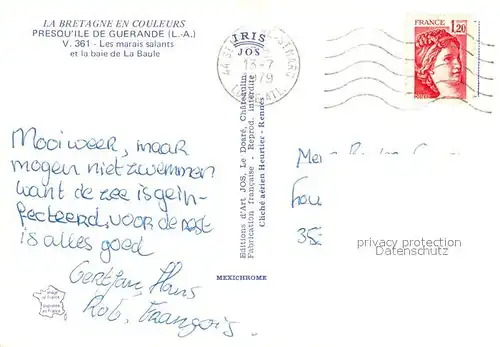 LA BRETAGNE EN COULEURS
PRESQU'ILE DE GUERANDE (L.-A.)
V. 361 - Les marais salants
et la baie de La Baule
IRIS
JOS
13-7
FRANCE
1,20
Mooi weer, maar
mogen niet zwemmen
want de zee is gein-
fecteerd, voor de rest
is alles goed
Gertjan, Hans
Rob, François.
Editions d'Art JOS, Le Doaré, Châteaulin
Fabrication française - Reprod. interdite
Cliché aérien Heurtier - Rennes
MEXICHROME
privacy protection
Datenschutz